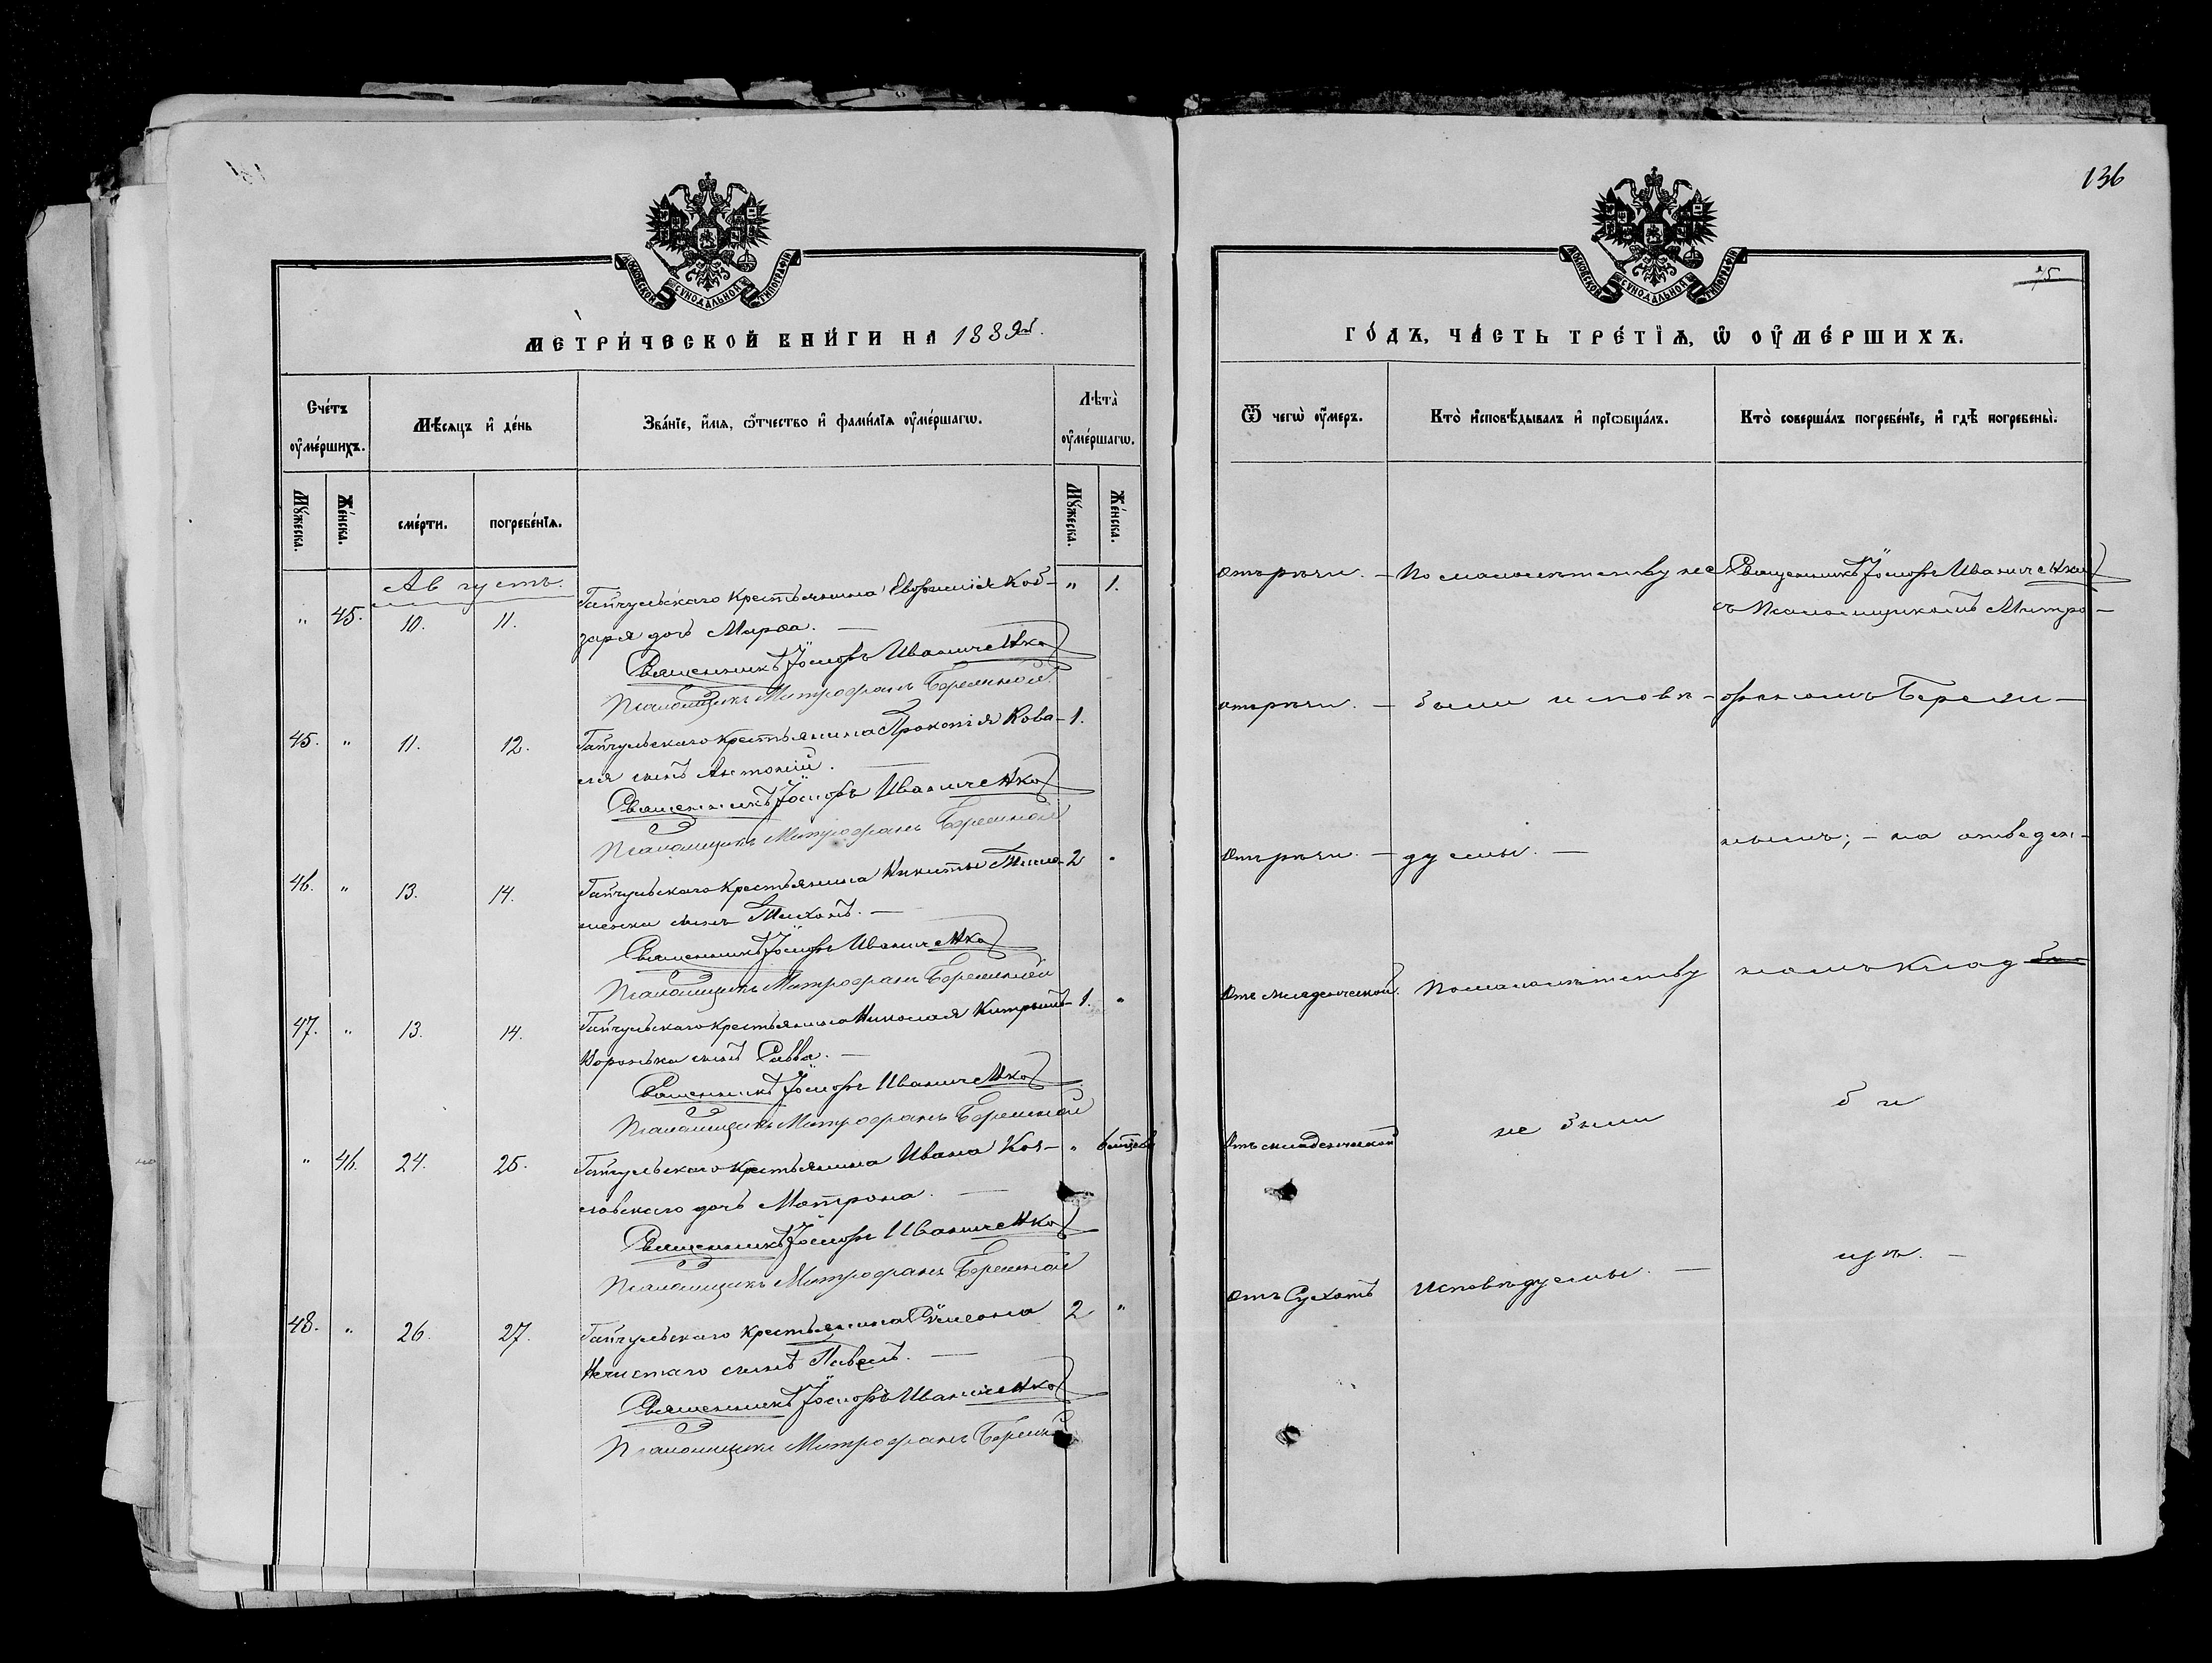 136
75
МОСКОВСКОЙ СѴНОДАЛЬНОЙ ТИПОГРАФІИ
МЕТРИ́ЧЕСКОЙ КНИ́ГИ НА 1889й.
Сче́тъ ᲂу҆ме́ршихъ.
Мѣ́сяцъ и҆ де́нь
Зва́нїе, и҆́мѧ, ѻ҆́тчество и҆ фамилїѧ ᲂу҆ме́ршагѡ.
Лѣта̀ ᲂу҆ме́ршагѡ.
Мꙋ́жеска.
Же́нска.
сме́рти.
погребе́нїѧ.
Мꙋ́жеска.
Же́нска.
Августъ.
„ 45. 10. 11. Гайчульскаго крестьянина Евфимія Коб- „ 1.
заря дочь Марѳа. —
Священникъ Іосифъ Иваниченко
Псаломщикъ Митрофанъ Бережной
45. „ 11. 12. Гайчульскаго крестьянина Прокопія Кова- 1.
ля сынъ Антоній. —
Священникъ Іосифъ Иваниченко
Псаломщикъ Митрофанъ Бережной
46. „ 13. 14. Гайчульскаго крестьянина Никиты 2 „
сынъ Тихонъ. —
Священникъ Іосифъ Иваниченко
Псаломщикъ Митрофанъ Бережной
47. „ 13. 14. Гайчульскаго крестьянина Николая 1. „
сынъ Савва. —
Священникъ Іосифъ Иваниченко
Псаломщикъ Митрофанъ Бережной
„ 46. 24. 25. Гайчульскаго крестьянина Ивана Коз- „
ловскаго дочь Матрона. —
Священникъ Іосифъ Иваниченко
Псаломщикъ Митрофанъ Бережной
48. „ 26. 27. Гайчульскаго крестьянина Сѵмеона 2 „
Нечистаго сынъ Павелъ. —
Священникъ Іосифъ Иваниченко
Псаломщикъ Митрофанъ Бережной
МОСКОВСКОЙ СѴНОДАЛЬНОЙ ТИПОГРАФІИ
ГО́ДЪ, ЧА́СТЬ ТРЕ́ТЇѦ, Ѡ҆ ОУ҆МЕ́РШИХЪ.
Ѿ чегѡ̀ ᲂу҆́меръ.
Кто̀ и҆сповѣ́дывалъ и҆ прїѡбща́лъ.
Кто̀ соверша́лъ погребе́нїе, и҆ гдѣ̀ погребены̀.
По малолѣтству не
Священникъ Іосифъ Иваниченко
съ Псаломщикомъ Митро-
были исповѣ-
фаномъ Береж-
дуемы. —
нымъ; — на отведен-
Отъ младенческой.
По малолѣтству
номъ клад
Отъ младенческой
не были
би
Отъ Сухотъ
исповѣдуемы. —
щѣ. —